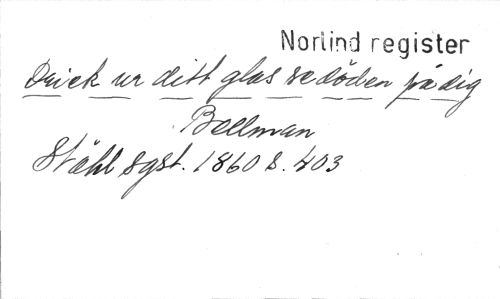 Norlind register
Drick ur ditt glas se döden på dig
Bellman
Ståhl sgst. 1860 s. 403